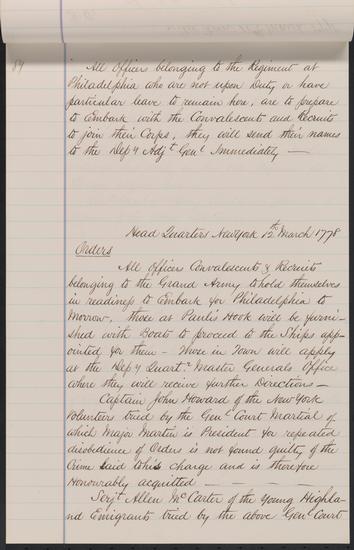 84
All Officers belonging to the Regiment at
Philadelphia who are not upon Duty or have
particular leave to remain here, are to prepare
to Embark with the Convalescents and Recruits
to join their Corps, they will send their names
to the Depy Adjt Genl Immediately —
Head Quarters NewYork 12th March 1778
Orders
All Officers Convalescents & Recruits
belonging to the Grand Army to hold themselves
in readiness to Embark for Philadelphia to
Morrow. those at Paul's Hook will be furni-
shed with Boats to proceed to the Ships app-
ointed for them — Those in Town will apply
at the Depy Quartr Master Generals Office
where they will receive further Directions —
Captain John Howard of the New York
Volunteers tried by the Genl Court Martial of
which Major Martin is President for repeated
disobedience of Orders is not found guilty of the
Crime Laid to his charge and is therefore
Honourably acquitted — — — —
Serjt Allen McCarter of the Young Highla-
nd Emigrants tried by the above Genl Court